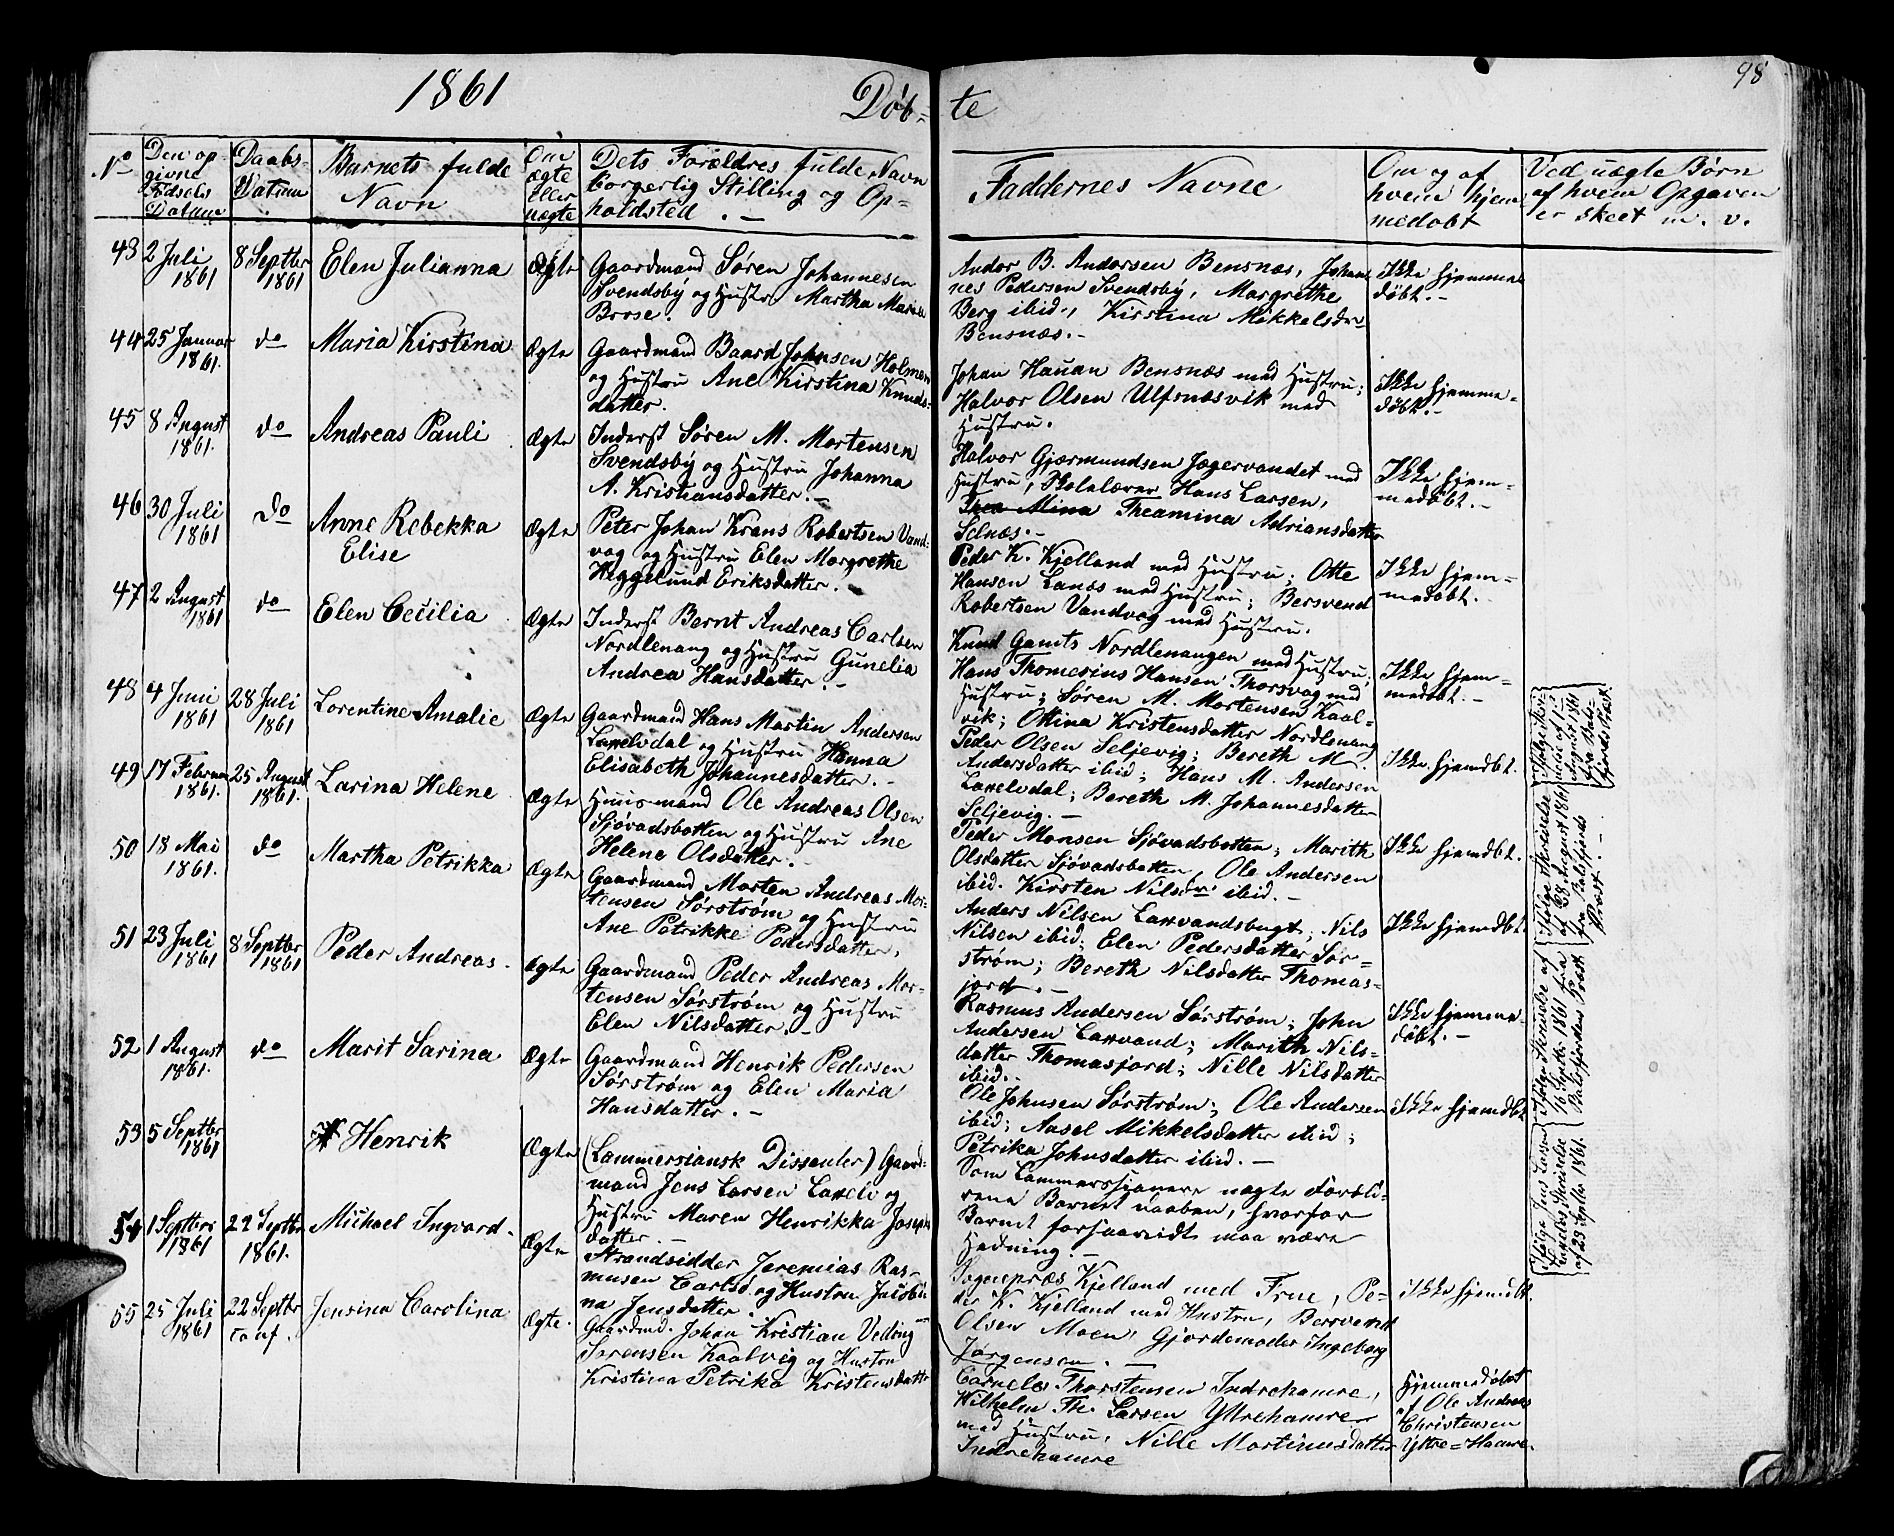 1861
Døb-
te
98
No
Den op-
givne
Fødsels
Datum
Daabs-
Datum
Barnets fulde
Navn
Om
ægte
eller
uægte
Dets Forældres fulde Navn
borgerlig Stilling og Op-
holdsted. -
Faddernes Navne
Om og af
hvem hjem
medøbt
Ved uægte Børn
af hvem Opgaven
er skeet m. v.
43
2 Juli
1861
8 Septbr
1861
Elen Julianna
Ægte
Gaardmand Søren Johannesen
Svendsby og Hustru Martha Marie
Brose.
Andor B. Andorsen Bensnæs, Johan
nes Pedersen Svendsby, Margrethe
Berg ibid., Kirstina Mikkelsdr
Bensnæs. -
Ikke hjemme
døbt. -
44
25 Januar
1861.
do
Maria Kirstina
Ægte
Gaardmand Baard Johnsen Holmen
og Hustru Ane Kirstina Knuds-
datter.
Johan Hauan Bensnæs med Hustru;
Halvor Olsen Ulfsnæsvik med
Hustru.
Ikke hjemme-
døbt. -
45
8 August
1861.
do
Andreas Pauli
Ægte
Inderst Søren M. Mortensen
Svendsby og Hustru Johanna
A. Kristiansdatter. -
Halvor Gjærmundsen Jægervandet med
Hustru, Skolelærer Hans Larsen,
Thea Mina Theamina Adriansdatter
Selnæs. -
Ikke hjem-
medøbt. -
46
30 Juli
1861
do
Anne Rebekka
Elise
Ægte
Peter Johan Krans Robertsen Vand-
vog og Hustru Elen Margrethe
Heggelund Eriksdatter.
Peder K. Kjelland med Hustru; Otte
Hansen Lanæs med Hustru; Bersvend
Robertsen Vandvog med Hustru.
Ikke hjem-
medøbt. -
47
2 August
1861
do
Elen Cecilia
Ægte
Inderst Bernt Andreas Carlsen
Nordlenang og Hustru Gunelia
Andrea Hansdatter. -
Knud Gamts Nordlenangen med Hustru;
Hans Thomesius Hansen Thorsvog med
Hustru; Søren M. Mortensen Kaal-
vik; Ottina Kristensdatter Nordlenang
Ikke hjem-
medøbt. -
48
4 Juni
1861
28 Juli
1861
Lorentine Amalie
Ægte
Gaardmand Hans Martin Andersen
Laxelvdal og Hustru Hanna
Elisabeth Johannesdatter. -
Peder Olsen Seljevig; Bereth M.
Andersdatter ibid; Hans M. Andersen
Laxelvdal; Bereth M. Johannesdatter
Seljevig. -
Ikke hjemdbt.
49
17 Februar
1861.
25 August
1861.
Larina Helene
Ægte
Huusmand Ole Andreas Olsen
Sjøvadsbotten og Hustru Ane
Helene Olsdatter. -
Peder Monsen Sjøvadsbotten; Marith
Olsdatter Sjøvadsbotten, Ole Andersen
ibid. Kirsten Nilsdr ibid. -
Ikke hjemdbt.
50
18 Mai
1861.
do
Martha Petrikka
Ægte
Gaardmand Morten Andreas Mor-
tensen Sørstrøm og Hustru
Ane Petrikke Pedersdatter.
Anders Nilsen Laxvandsbugt; Nils
Nilsen ibid; Elen Pedersdatter Sør-
strøm; Bereth Nilsdatter Thomas-
jord. -
Ikke hjemdbt.
51
23 Juli
1861
8 Septbr
1861
Peder Andreas.
Ægte
Gaardmand Peder Andreas Mor-
tensen Sørstrøm og Hustru
Elen Nilsdatter. -
Rasmus Andersen Sørstrøm; John
Andersen Laxvand; Marith Nils-
datter Thomasjord; Nille Nilsdatter
ibid.
Ikke hjemme-
døbt. -
52
1 August
1861.
do
Marit Sarina
Ægte
Gaardmand Henrik Pedersen
Sørstrøm og Elen Maria
Hansdatter. -
Ole Johnsen Sørstrøm; Ole Andersen
ibid; Aasel Mikkelsdatter ibid;
Petrika Johnsdatter ibid. -
Ikke hjemdbt
53
5 Septbr
1861
Henrik
Ægte
(Lammersiansk Dissenter) Gaard-
mand Jens Larsen Laxelv og
Hustru Maren Henrikka Joseph
datter. -
Som Lammersianere nægte Foræld-
rene Barnet Daaben, hvorfor
Barnet forsaavidt maa være
Hedning. -
54
1 Septbr
1861
22 Septbr
1861.
Michael Ingvard.
Ægte
Strandsidder Jeremias Ras-
musen Carlsø og Hustru Jacobi-
na Jensdatter.
Sognepræs Kjelland med Frue, Pe-
der K. Kjelland med Hustru, Bersvend
Olsen Moen, Gjordemoder Ingeborg
Jørgensen. -
Ikke hjemdbt.
55
25 Juli
1861
22 Septbr
conf.
Jensina Carolina
Ægte.
Gaardmd. Johan Kristian Veding
Sørensen Kaalvig og Hustru
Kristina Petrika Kristensdattr
Cornelis Thorstensen Indrehamre,
Wilhelm Th. Larsen Yttrehamre
med Hustru, Nille Mortinusdatter
Indrehamre
Hjemmedøbt
af Ole Andreas
Christensen
Yttre=Hamre.
Ifølge Skri-
velse af 1ste
August 1861
fra Bals-
fjords Præst.
Ifølge Skrivelse
af 28 August 1861
fra Balsfjords
Præst. -
Ifølge Skrivelse af
16 Septbr 1861 fra
Balsfjordens Præst
Ifølge Jens Larsen
Laxelvs Skrivelse
af 23 Septbr 1861.